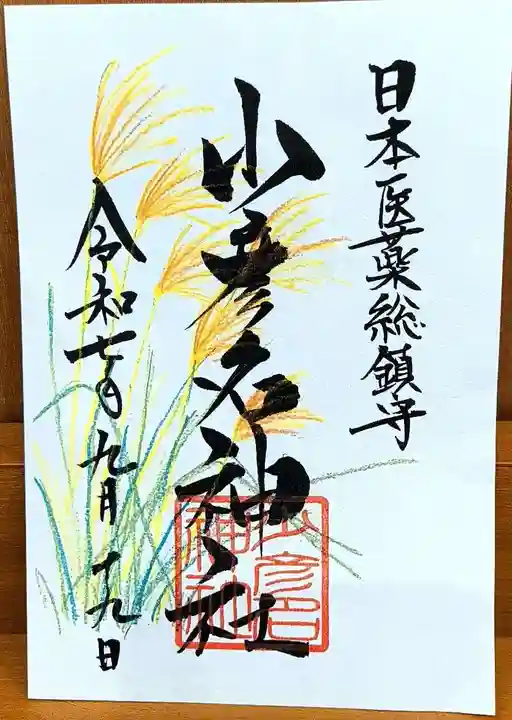 日本医薬総鎮守
少彦名神社
令和七年九月十九日
少彦名
神社